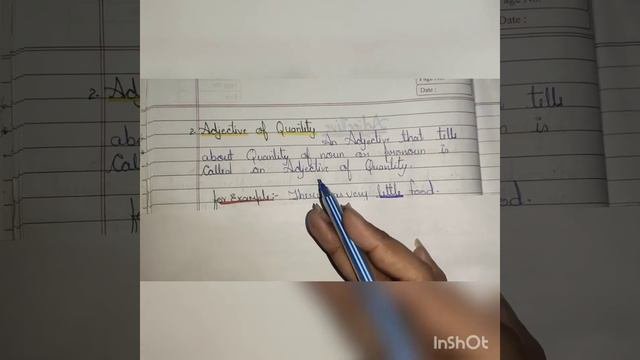 Date :
Date :
2. Adjective of Quantity :- An Adjective that tells
about Quantity of noun or pronoun is
Called an Adjective of Quantity.
for Example:- There was very little food.
InShOt